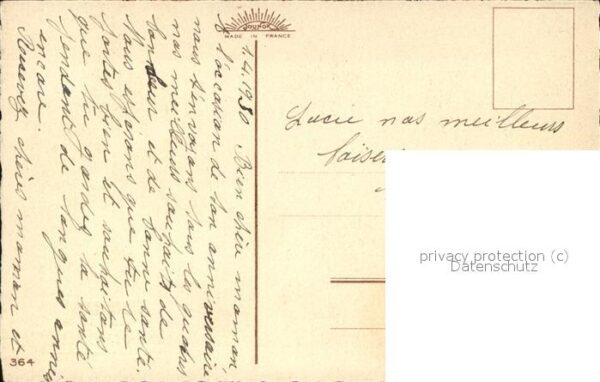 MADE IN FRANCE
1.4.1930 Bien chère maman
à l'occasion de ton anniversaire
nous t'envoyons tous les quatres
nos meilleurs souhaits de
bonheur et de bonne santé.
Nous espérons que tu te
portes bien et souhaitons
que tu gardes ta santé
pendant de longues année
encore.
Recevez chères maman et
Lucie nos meilleurs
baiser
364
privacy protection (c)
Datenschutz